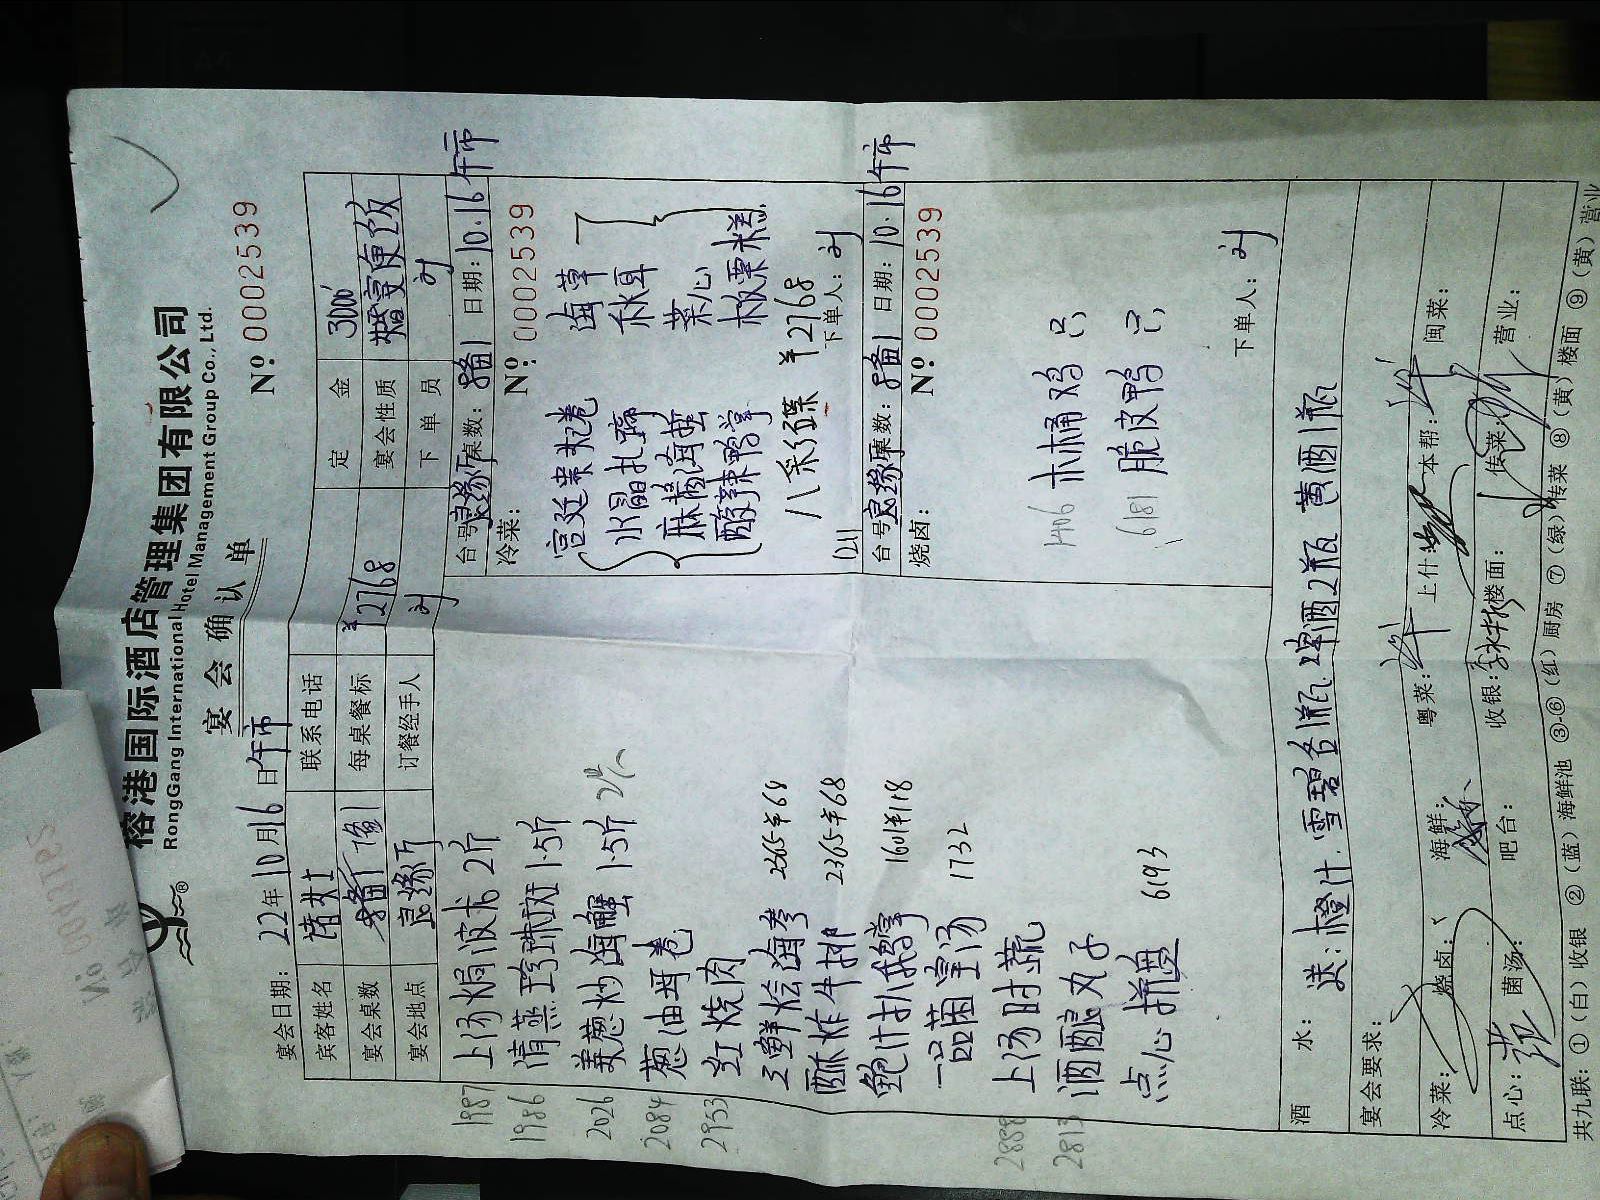 榕港国际酒店管理集团有限公司
RongGang International Hotel Management Group Co., Ltd.
宴会确认单
宴会日期: 22年10月16日午市
Nº 0002539
宾客姓名 诸女士 联系电话 定金 3000
宴会桌数 1备1 每桌餐标 ¥2768 宴会性质 婚宴便饭
宴会地点 良缘厅 订餐经手人 刘 下单员 刘
1987 上汤焗波龙 2斤
1986 清蒸珍珠斑 1.5斤
2026 姜葱炒海蟹 1.5斤
2084 葱油花卷
2953 红烧肉
三鲜烩海参 2365 ¥68
酥炸牛排 2365 ¥68
鲍汁扒鹅掌 1601 ¥118
一品菌皇汤 1732
2888 上汤时蔬
2813 酒酿丸子
点心拼盘 6193
台号 良缘厅 桌数: 1备1 日期: 10.16午市
冷菜: Nº: 0002539
宫廷素鹅卷 海草
水晶扎蹄 秋耳
麻酱海蜇 菜心
醇辣鸭掌 板栗糕
八彩碟 ¥2768
1211 下单人: 刘
台号 良缘厅 桌数: 1备1 日期: 10.16午市
烧卤: Nº 0002539
1406 木桶鸡 只
6181 脆皮鸭 只
下单人: 刘
酒水: 送: 橙汁.雪碧各1瓶.啤酒2瓶 黄酒1瓶
宴会要求:
冷菜: 烧卤: 海鲜: 粤菜: 上什: 本帮: 闽菜:
点心: 菌汤: 吧台: 收银: 楼面: 传菜: 营业:
共九联: ①(白)收银 ②(蓝)海鲜池 ③-⑥(红)厨房 ⑦(绿)传菜 ⑧(黄)楼面 ⑨(黄)营业